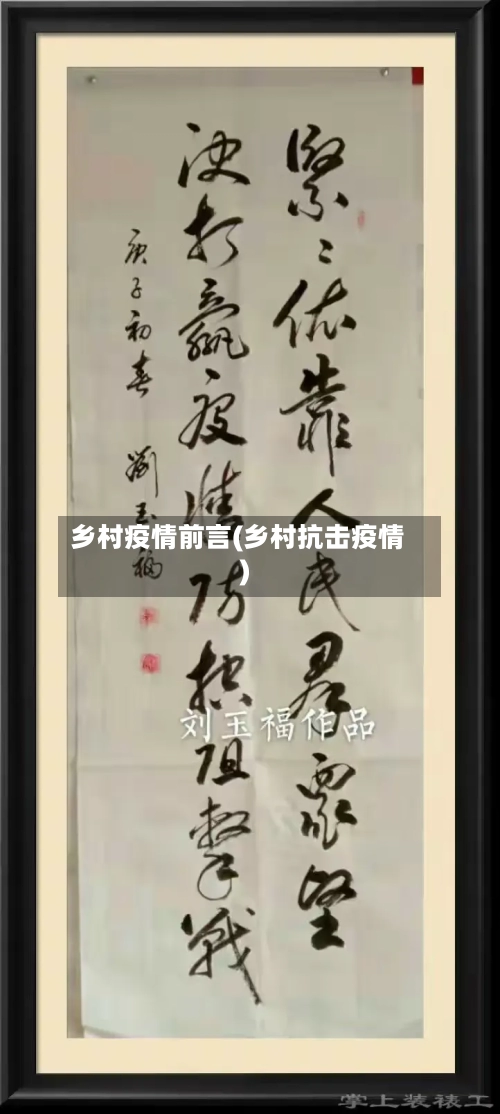 緊〻依靠人民羣眾堅
决打赢疫情防控阻擊戰
庚子初春 劉玉福
乡村疫情前言(乡村抗击疫情
)
刘玉福作品
掌上装裱工